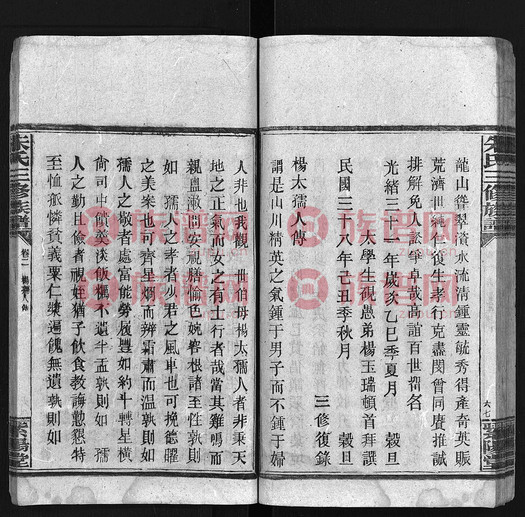 朱氏三修族譜
龍山聳翠資水流清鍾靈毓秀得產奇英賑
荒濟世純仁復生孝行克盡閔曾同賡推誠
排解免人訟爭卓哉高誼百世留名
光緒三十一年歲次乙巳季夏月 穀旦
太學生硯愚弟楊玉瑞頓首拜譔
民國三十八年己丑季秋月 穀旦
三修復錄
楊太孺人傳
謂是山川精英之氣鍾于男子而不鍾于婦
人非也我觀 世伯母楊太孺人者非秉天
地之正氣而女之有士行者哉當其雞鳴而
親盥漱問安視膳愉色婉容根諸至性孰則
如 孺人之孝者少君之風車也可挽德耀
之美案也可齊星爛而辨霜肅而溫孰則如
孺人之敬者處富能勞履豐如約斗轉星橫
尚司中饋羹淡飯糲不遺半盂孰則如 孺
人之勤且儉者視姪猶子飲食教誨懃懇特
至恤孤憐貧義粟仁漿遍餽無遺孰則如
朱氏三修族譜
卷二